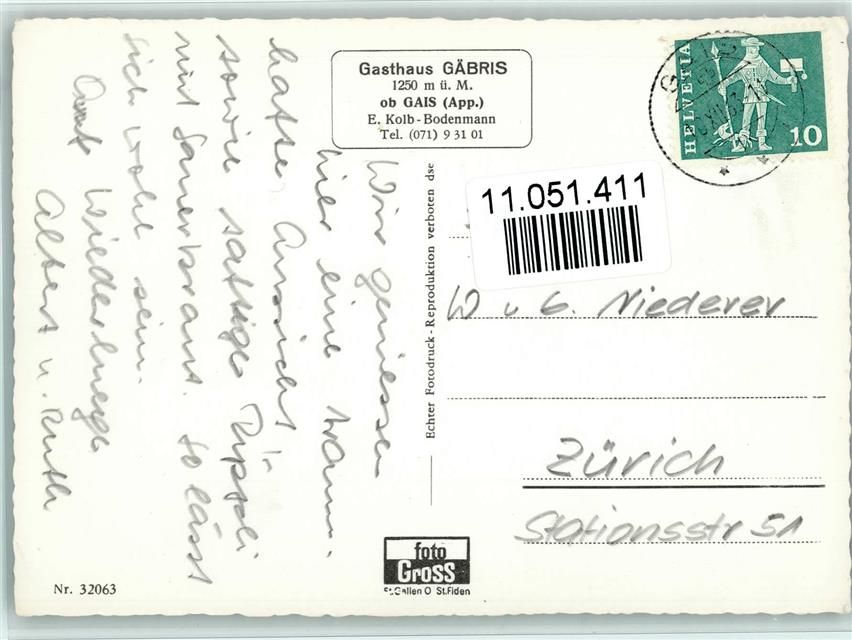 Gasthaus GÄBRIS
1250 m ü. M.
ob GAIS (App.)
E. Kolb-Bodenmann
Tel. (071) 9 31 01
HELVETIA
10
11.051.411
Wir geniessen
hier eine traum-
hafte Aussicht
sowie saftige Rippli
mit Sauerkraut. So lässt
sich wohl sein.
Auf Wiederluege
Albert u. Ruth
Echter Fotodruck - Reproduktion verboten dse
W u G. Niederer
Zürich
Stationsstr 51
foto
Gross
St.Gallen O St.Fiden
Nr. 32063